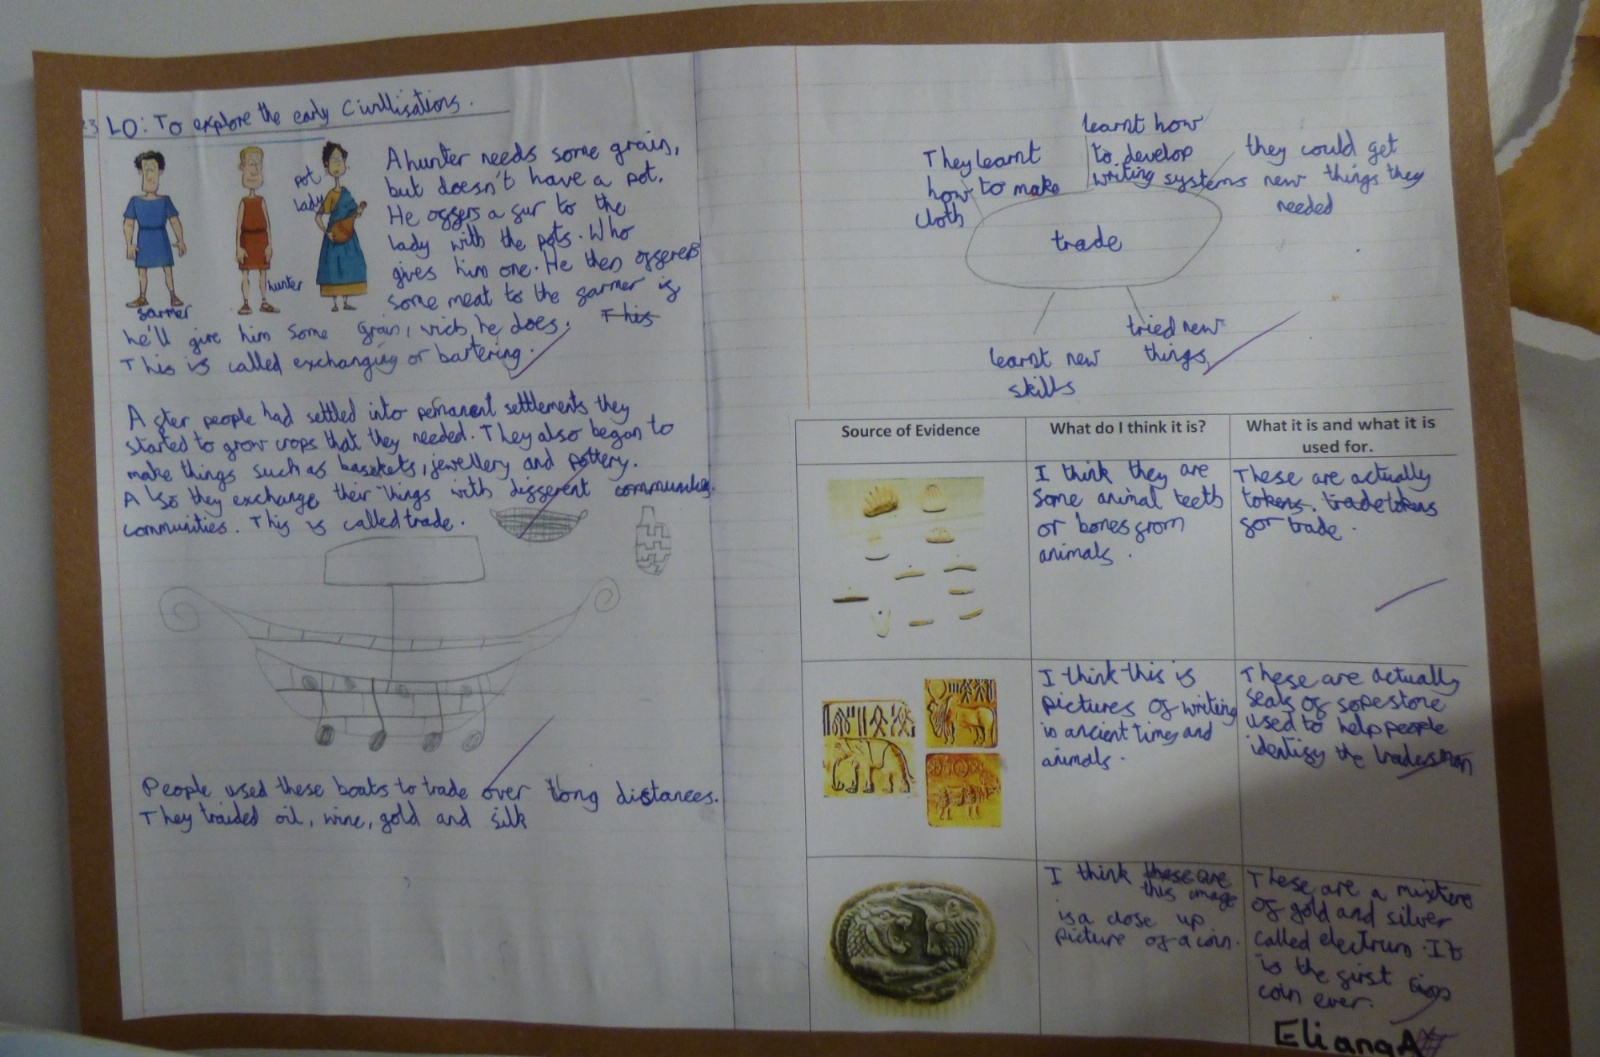 23 LO: To explore the early Civillisations.
pot
lady
hunter
farmer
A hunter needs some grain,
but doesn't have a pot.
He offers a fur to the
lady with the pots. Who
gives him one. He then offerers
some meat to the farmer if
he'll give him some grain, wich he does. This
This is called exchanging or bartering.
After people had settled into permanent settlements they
started to grow crops that they needed. They also began to
make things such as baskets, jewellery and pottery.
Also they exchange their things with different
communities. This is called trade.
People used these boats to trade over long distances.
They traided oil, wine, gold and silk
They learnt
how to make
cloth
learnt how
to develop
writing systems
they could get
new things they
needed
trade
learnt new
skills
tried new
things
Source of Evidence
What do I think it is?
What it is and what it is
used for.
I think they are
some animal teeth
or bones from
animals.
These are actually
tokens. trade tokens
for trade.
I think this is
pictures of writing
in ancient times and
animals.
These are actually
seals of sopestone
used to help people
identify the
I think these are
this image
is a close up
picture of a coin.
These are a mixture
of gold and silver
called electrum. It
is the first
coin ever.
Eliana